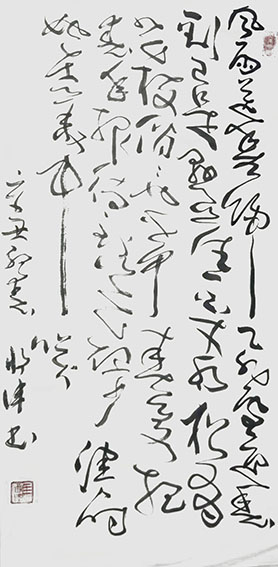 风雨送春归飞雪迎春
到已是悬崖百丈冰犹有
花枝俏俏也不争春只把
春来报待到山花烂漫时
她在丛中笑
辛丑初春
书